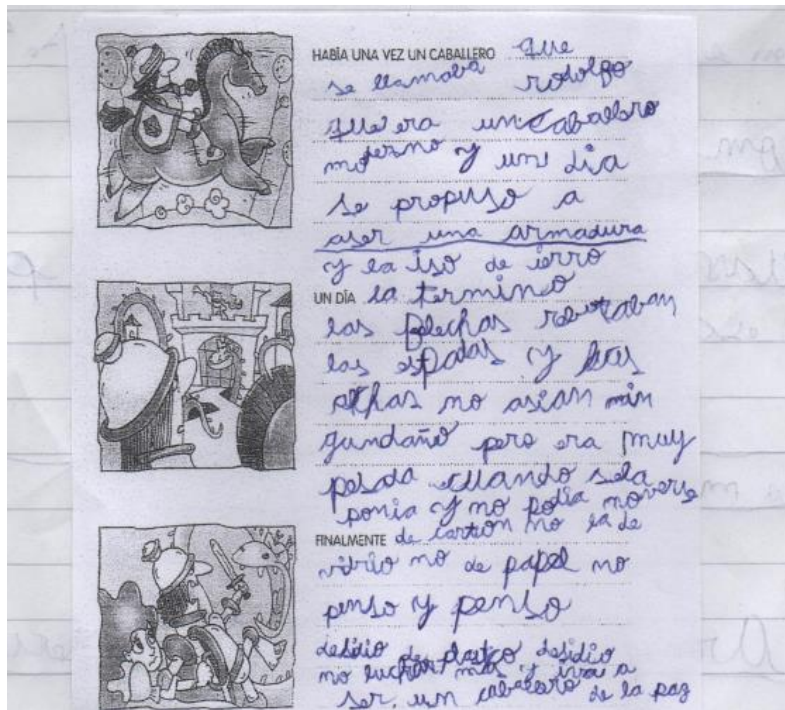 HABÍA UNA VEZ UN CABALLERO que
se llamava rodolfo
que era un caballero
moderno y un dia
se propuso a
aser una armadura
y la iso de ierro
UN DÍA la termino
las flechas rebotaban
las espadas y las
achas no asian nin
gundaño pero era muy
pesada cuando sela
ponia y no podia moverse
FINALMENTE de carton no la de
vidrio no de papel no
penso y penso
desidio de plastco desidio
no luchar mas y iva a
ser un caballero de la paz